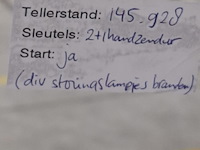 Tellerstand: 145.928
Sleutels: 2+1 handzender
Start: ja
(div storingslampjes branden)